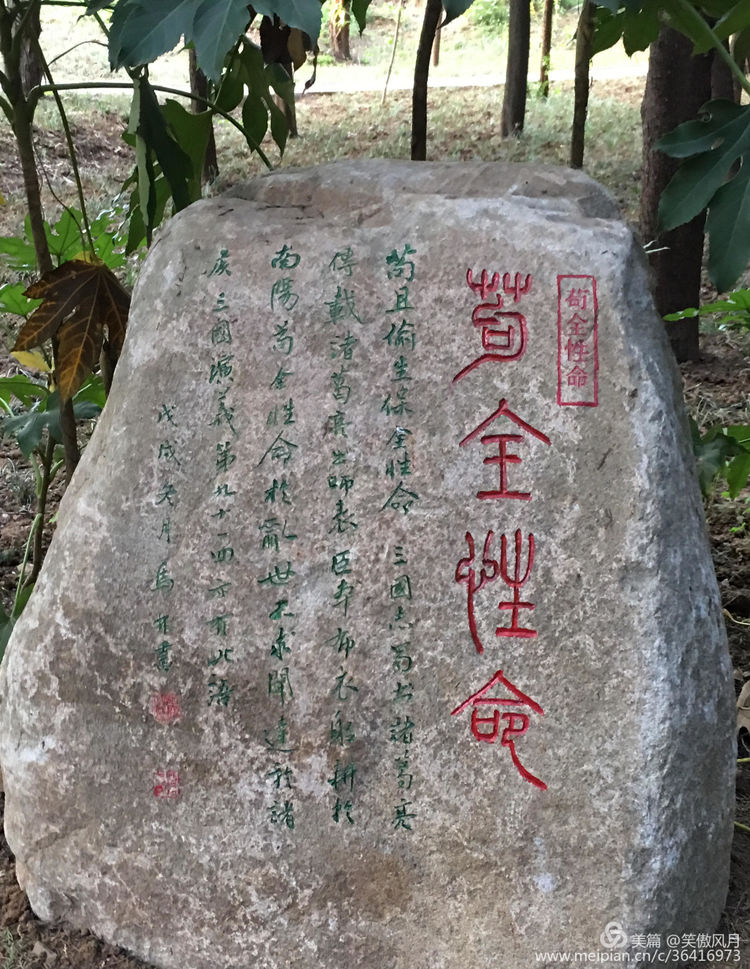 苟全性命
苟全性命
苟且偷生保全性命 三國志蜀书諸葛亮
傳載諸葛亮出師表臣本布衣躬耕於
南陽苟全性命於亂世不求聞達於諸
侯三國演義第九十一回亦有此語
戊戌 月馬 書
美篇 @笑傲风月
www.meipian.cn/c/36416973